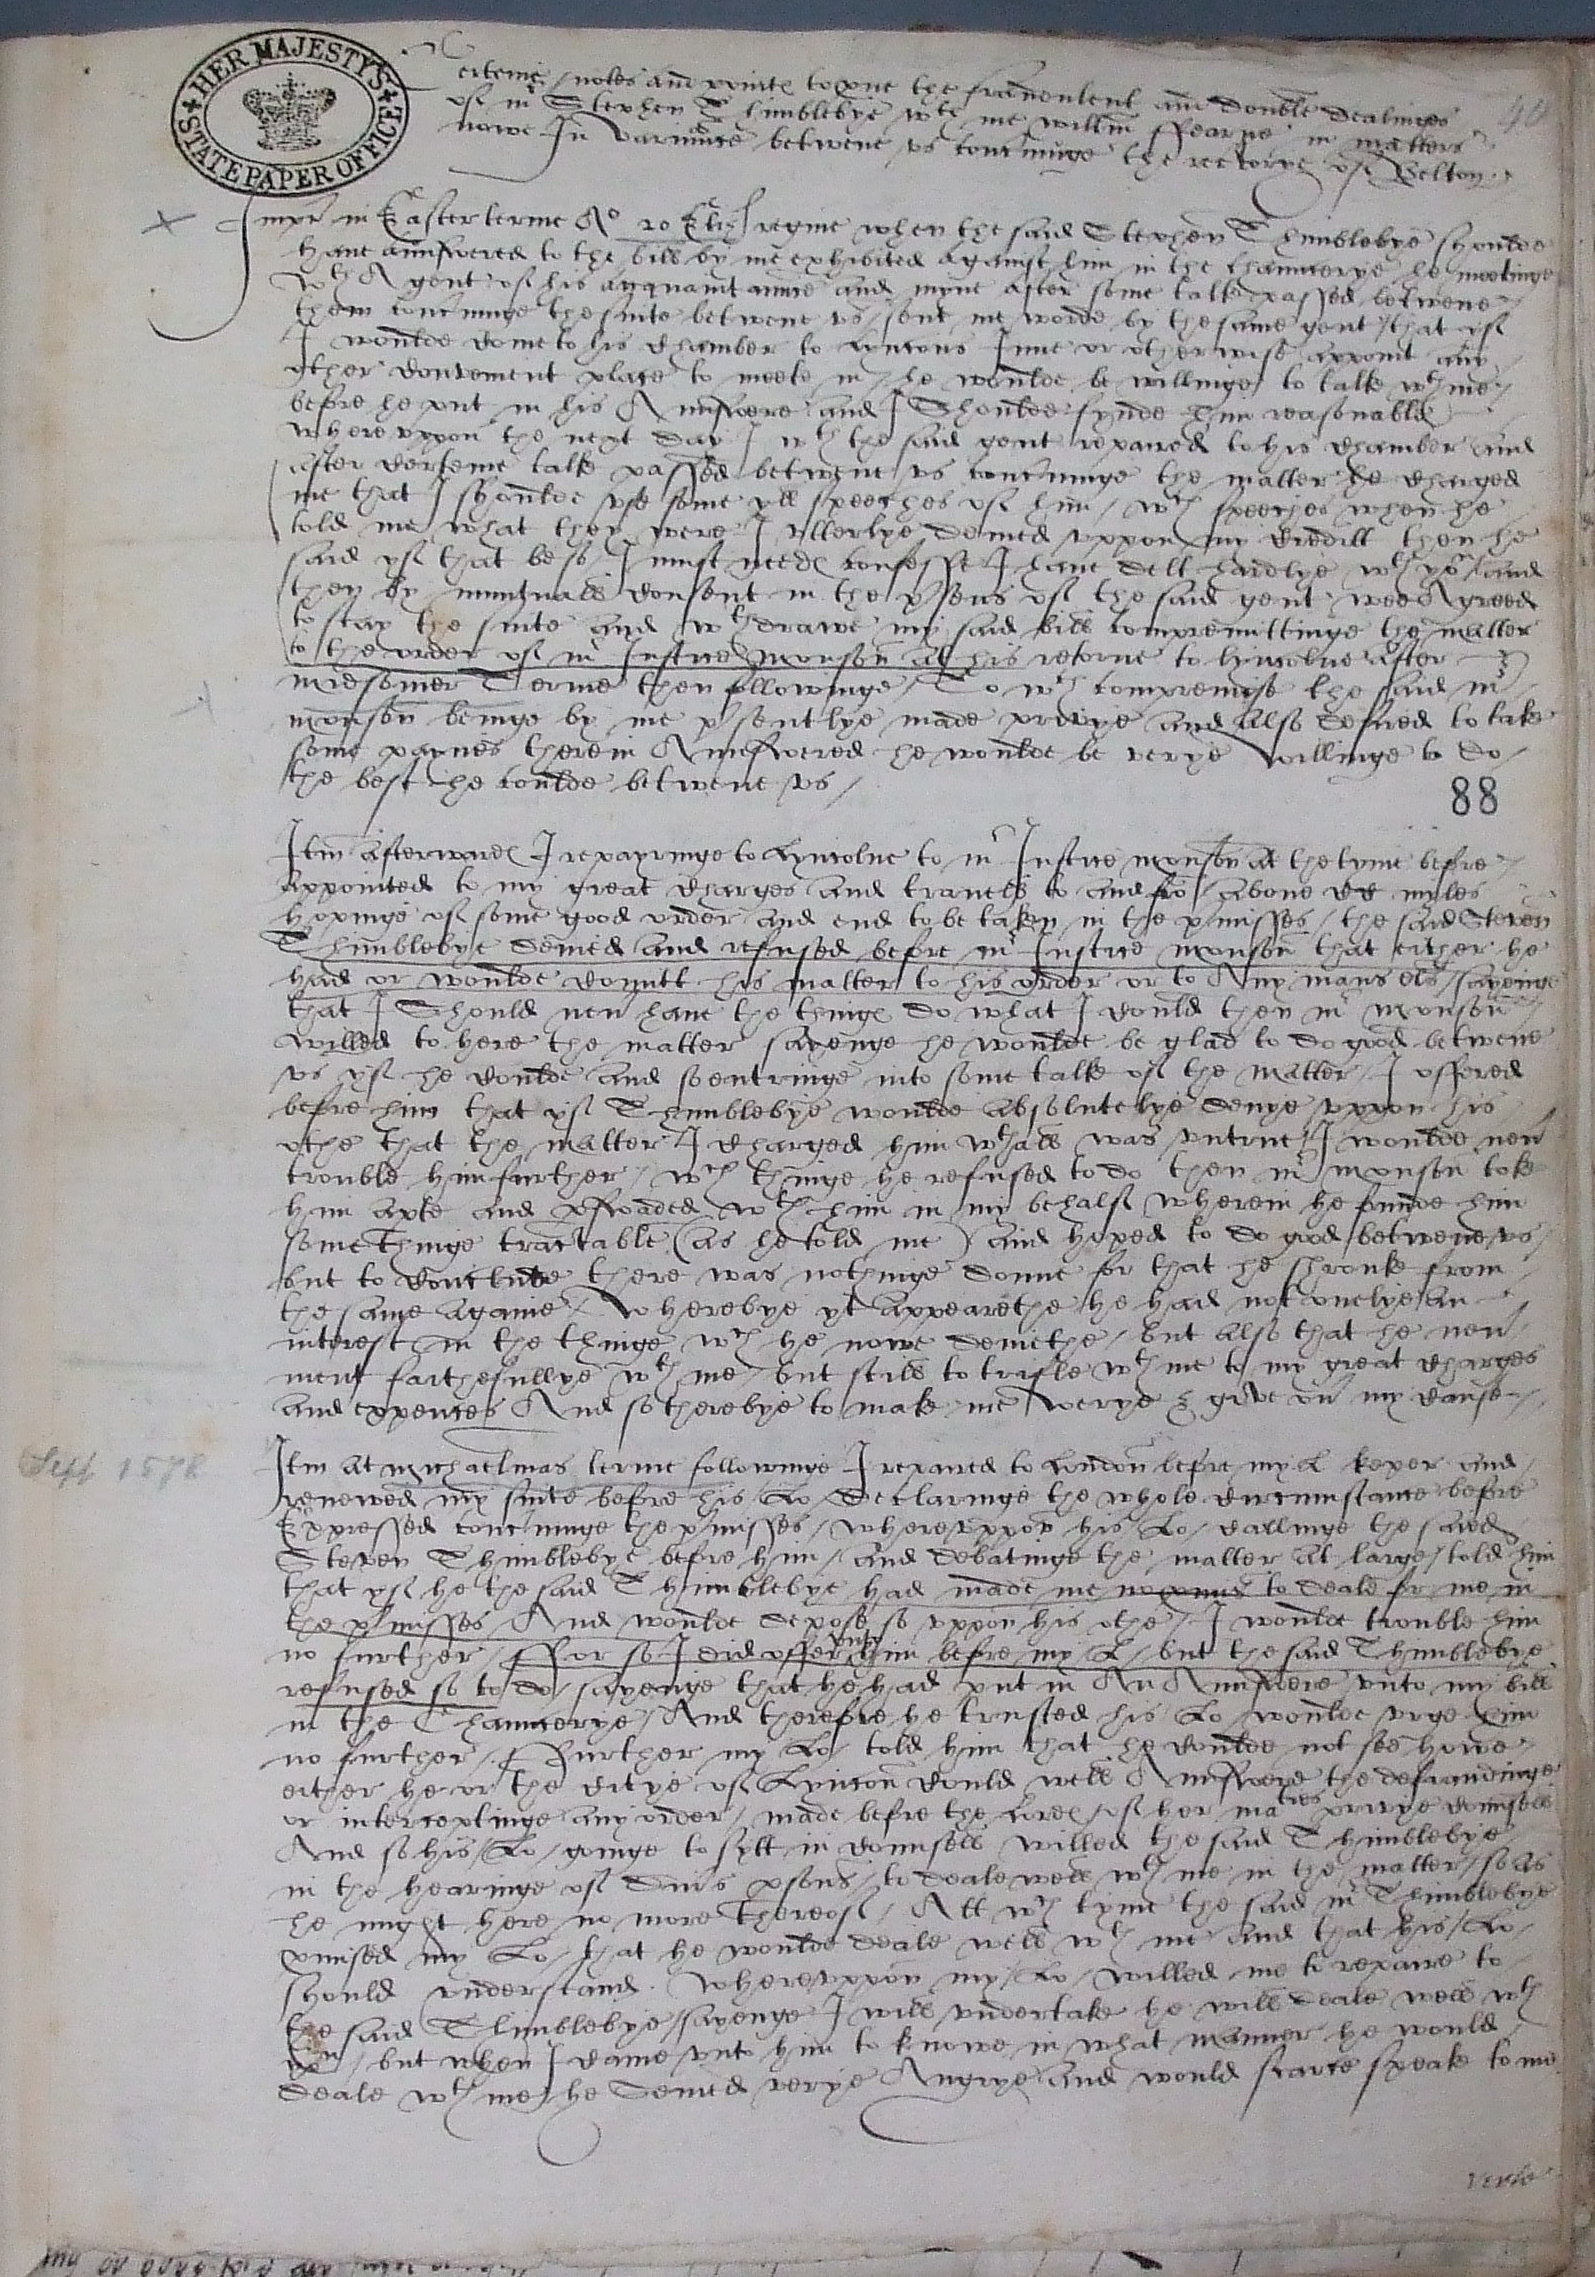 HER MAJESTY'S
STATE PAPER OFFICE
40
Certeine notes and pointes to prove the fraudentent and double dealinges
of mr Stephen Thimblebye wth me willm ffearne in matters
nowe In variaunce betwene us conc'ninge the rectorye of Belton
Impr in Easter terme Ao 20 Eliz regine when the said Stephen Thimblebye shoulde
have aunswered to the bill by me exhibited against him in the chauncerye he meetinge
wth A gent of his acquaintaunce and myne after some talke passed betwene
them conc'ninge the suite betwene us / sent me worde by the same gent / that yf
I woulde come to his chamber to Lyncons Inne or otherwise appoint any
other convenient place to meete in / he woulde be willinge to talke wth me /
before he put in his Aunswere and I shoulde fynde him reasonable
whereuppon the next day I wth the said gent repaired to his chamber and
after certeine talke passed betwene us conc'ninge the matter he charged
me that I shoulde use some yll speeches of him / wch speeches when he
told me what they were I utterlye denied uppon my creditt then he
said yf that be so I must needes confesse I have delt hardlye wth you and
then by mutuall consent in the p'sens of the said gent wee Agreed
to stay the suite and wthdrawe my said bill compremittinge the matter
to the order of mr Justice Monson At his retorne to Lincolne After
midsomer Terme then followinge / To wch compremise the said mr
monson beinge by me p'sentlye made privye and also desired to take
some paynes therein Aunswered he woulde be verye willinge to do
the best he coulde betwene us /
88
Itm Afterwardes I repayringe to Lyncolne to mr Justice monson At the tyme before
Appointed to my great charges and travell to and fro / above CC myles
hopinge of some good order and end to be taken in the p'misses / the said Steven
Thimblebye denied and refused before mr Justice monson that either he
had or woulde comitt his matter to his order or to Any mans els / sayenge
that I should nev' have the thinge do what I could then mr monson
willed to here the matter sayenge he woulde be glad to do good betwene
us yf he coulde and so entringe into some talke of the matter / I offered
before him that yf Thimblebye woulde Absolutelye denye uppon his
othe that the matter I charged him wthall was untrue / I woulde nev'
trouble him further / wch thinge he refused to do then mr monson toke
him apte and p'swaded wth him in my behalf wherein he founde him
some thinge tractable (as he told me) and hoped to do good betwene us /
but to conclude there was nothinge donne for that he shronke from
the same againe / Wherebye yt appearethe he had not onelye an
interest in the thinge wch he nowe deniethe / but also that he nev'
ment faithefullye wth me / but still to trifle wth me to my great charges
and expences And so therebye to make me werye & give ov' my cause /
Sept 1578
Itm At Michaelmas terme followinge I repaired to London before my L keper and
renewed my suite before his Lo / declaringe the whole circumstance before
Expressed conc'ninge the p'misses / whereuppon his Lo / callinge the said
Steven Thimblebye before him / and debatinge the matter at large / told him
that yf he the said Thimblebye had made me no to deale for me in
the p'misses And woulde depose so uppon his othe / I woulde trouble him
no further / ffor so I did offer unto him before my L / but the said Thimblebye
refused so to do / sayenge that he had put in An Aunswere unto my bill
in the Chauncerye / And therefore he trusted his Lo / woulde urge him
no further / ffurther my Lo / told him that he coulde not see howe
either he or the citye of Lyncon could well Aunswere the defraudinge
or interceptinge any order / made before the Lordes of her maties privye counsell
And so his / Lo / goinge to sytt in counsell willed the said Thimblebye
in the hearinge of div's p'sons / to deale well wth me in the matter / so as
he might here no more thereof / Att wch tyme the said mr Thimblebye
p'mised my Lo / that he woulde deale well wth me and that his / Lo /
should understand. Whereuppon my / Lo / willed me to repaire to
the said Thimblebye / sayenge I will undertake he will deale well wth
you / but when I came unto him to knowe in what manner he would
deale wth me / he semed verye Angrye and would scarce speake to me
verte